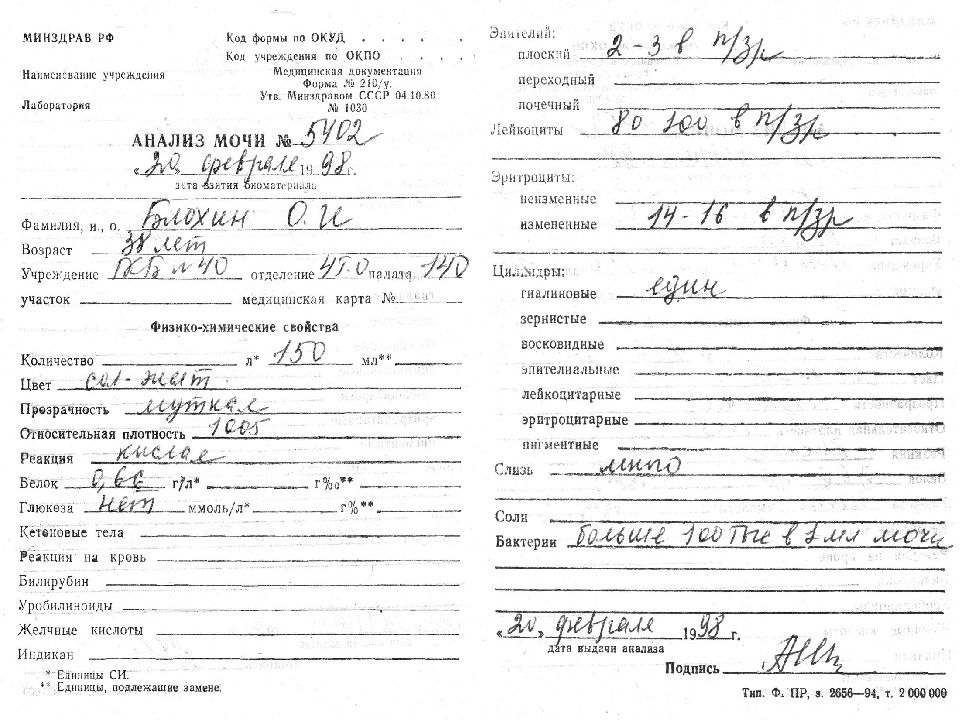 МИНЗДРАВ РФ
Код формы по ОКУД . . . . .
Код учреждения по ОКПО . . . .
Наименование учреждения
Медицинская документация
Форма № 210/у.
Утв. Минздравом СССР 04.10.80
№ 1030
Лаборатория
АНАЛИЗ МОЧИ № 5402
«20» февраля 1998 г.
дата взятия биоматериала
Фамилия, и., о. Блохин О. И
Возраст 38 лет
Учреждение ГКБ № 40 отделение 4Т.О палата 140
участок медицинская карта №
Физико-химические свойства
Количество л* 150 мл**
Цвет сол-желт
Прозрачность мутная
Относительная плотность 1005
Реакция кислая
Белок 0,66 г/л* г‰**
Глюкоза нет ммоль/л* г%**
Кетоновые тела
Реакция на кровь
Билирубин
Уробилиноиды
Желчные кислоты
Индикан
* Единицы СИ.
** Единицы, подлежащие замене.
Эпителий:
плоский 2-3 в п/зр
переходный
почечный
Лейкоциты 80 100 в п/зр
Эритроциты:
неизменные
измененные 14-16 в п/зр
Цилиндры:
гиалиновые един
зернистые
восковидные
эпителиальные
лейкоцитарные
эритроцитарные
пигментные
Слизь много
Соли
Бактерии больше 100 тыс в 1 мл мочи
«20» февраля 1998 г.
дата выдачи анализа
Подпись
Тип. Ф. ПР, з. 2656—94, т. 2 000 000